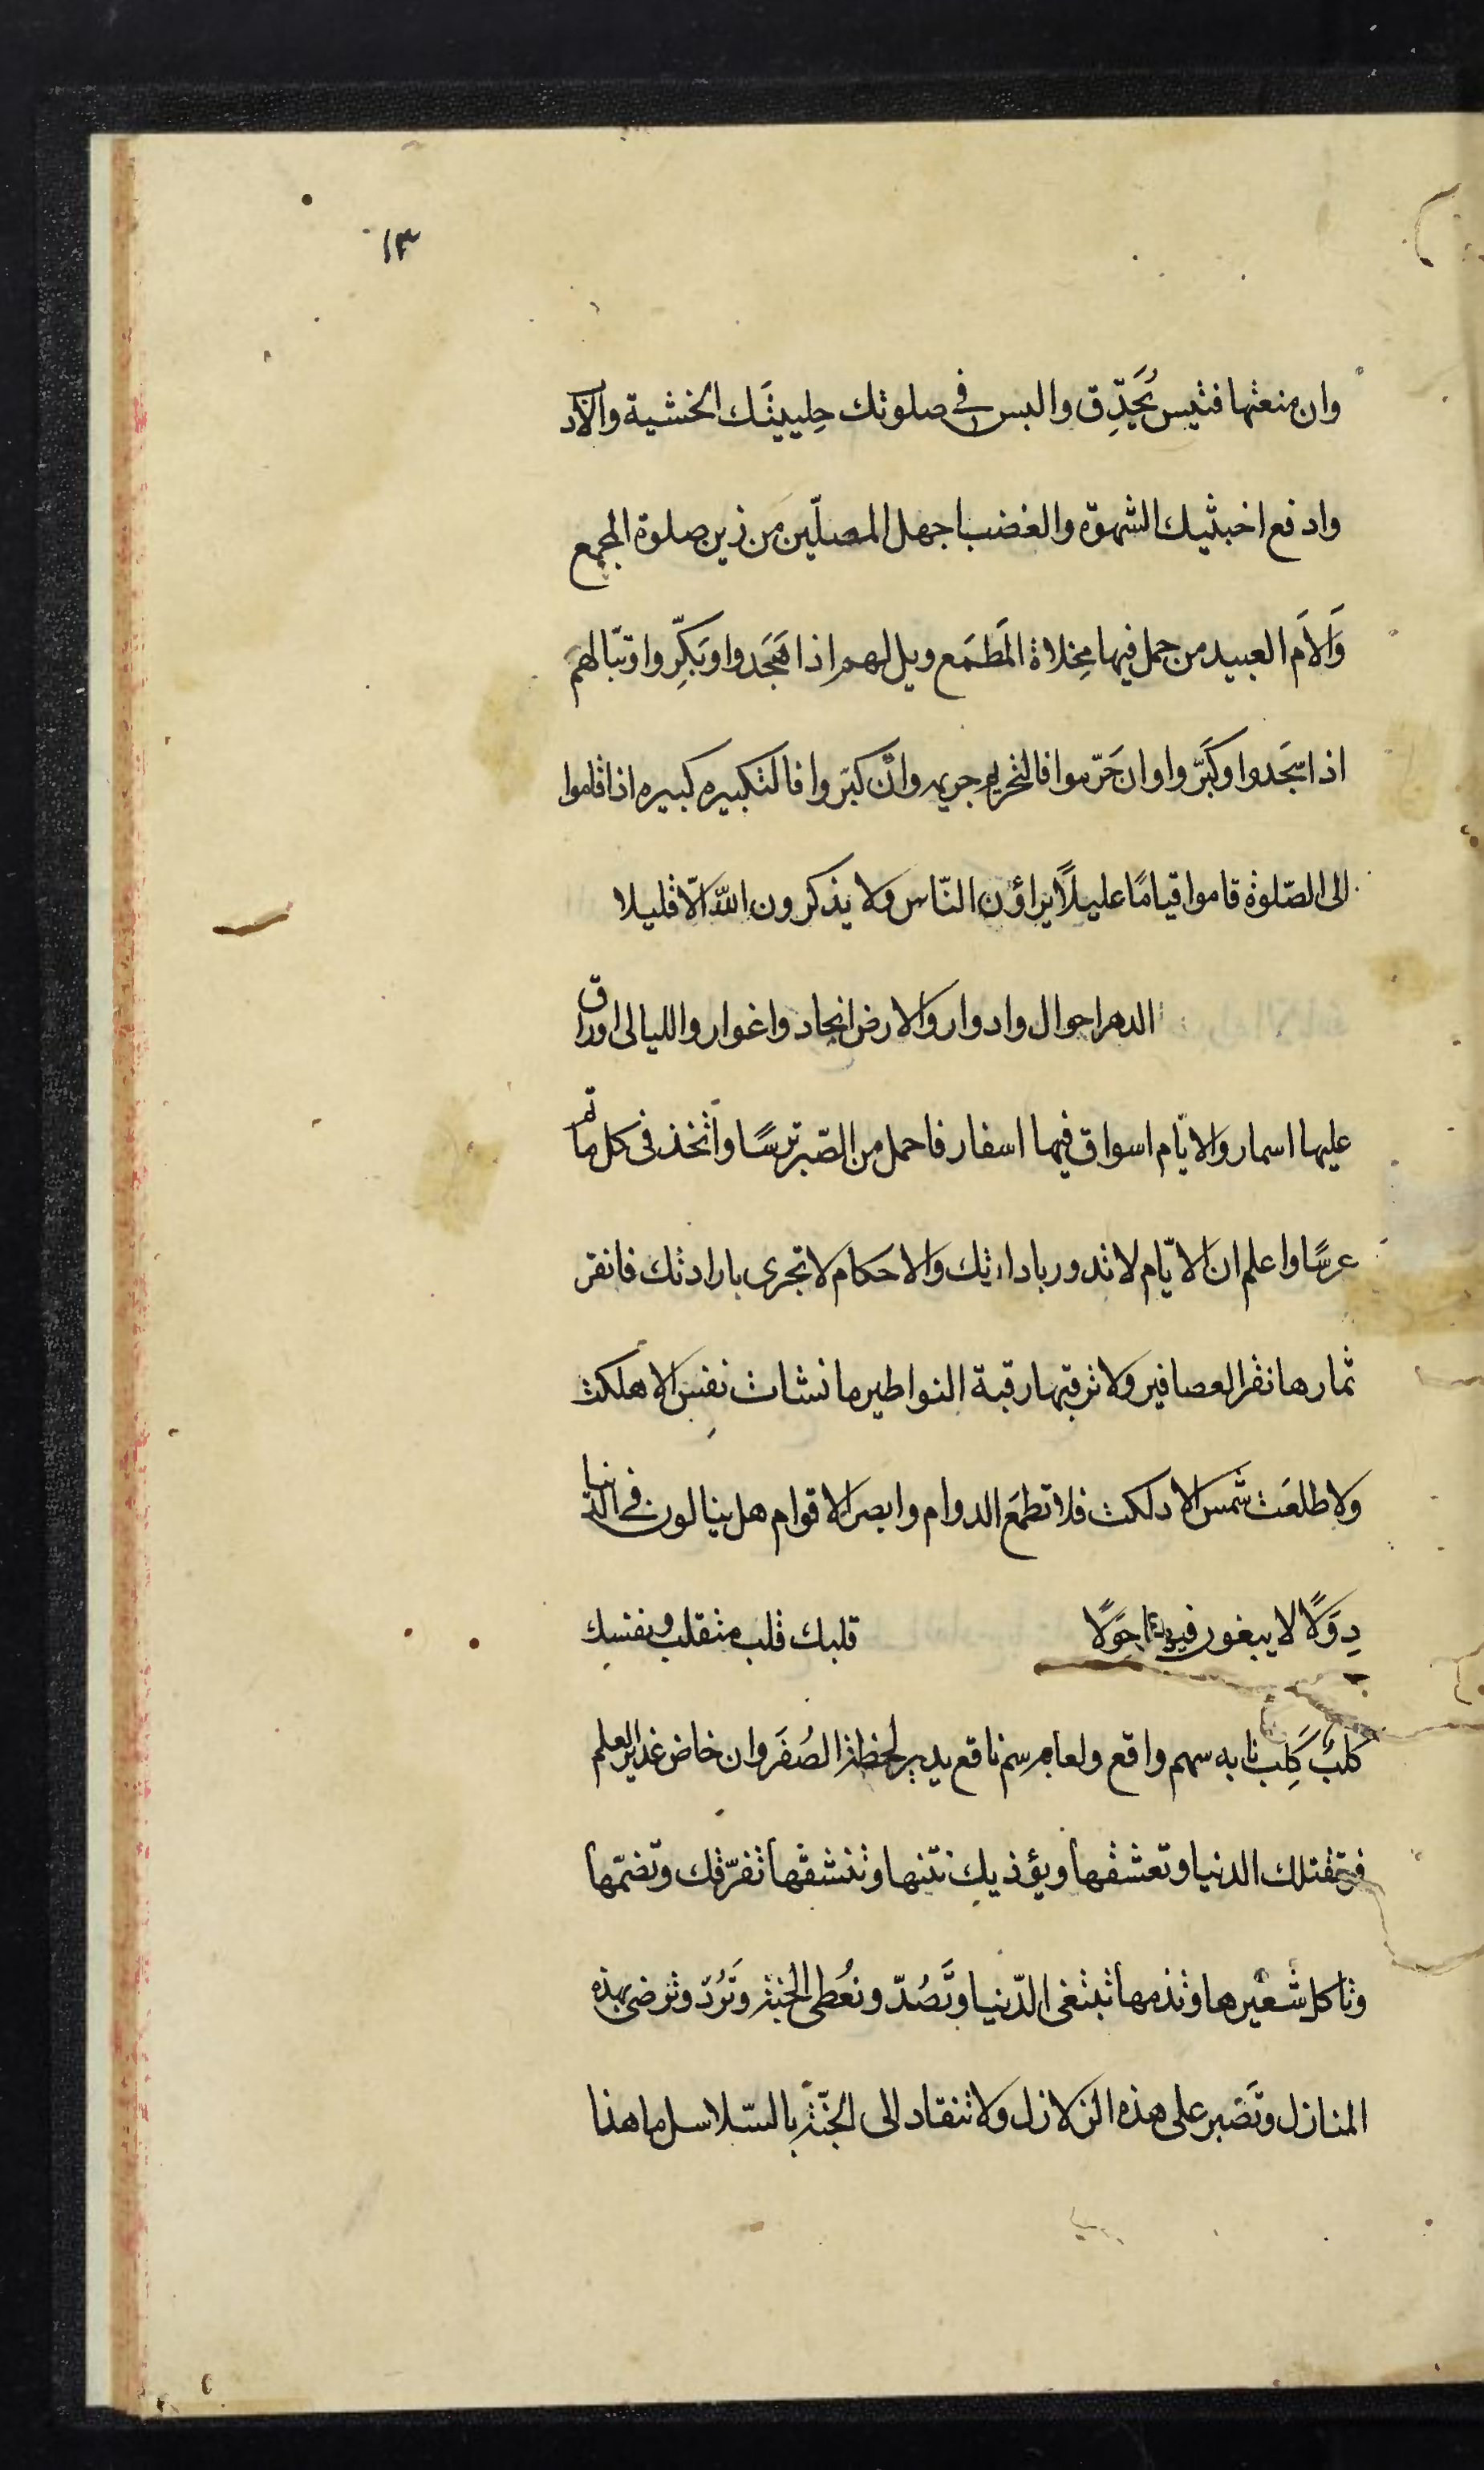 ١٣
وان منعتها فتيس يَحَدِّق والبس في صلوتك حِليتَك الخشية والأدب
وادفع اخبثيك الشهوة والغضب اجهل المصلّين من زين صلوة المجمع
وَالأم العبيد من حمل فيها مِخلاة المَطمَع ويل لهم اذا هَجَدوا وبَكِّروا وتبّا لهم
اذا سجَدوا وكَبَّروا وان حَرّموا فالتحريم جريمه وان كبّروا فالتكبيره كبيره اذا قاموا
الى الصّلوة قاموا قيامًا عليلًا يراؤن النّاس ولا يذكرون الله الّا قليلا
الدهر احوال وادوار والارض انجاد واغوار والليالى اوراق
عليها اسمار والايّام اسواق فيها اسفار فاحمل من الصّبر ترسًا واتّخذ فى كل ماتم
عرسًا واعلم ان الايّام لا تدور بادارتك والاحكام لا تجرى بارادتك فانقر
ثمارها نقر العصافير ولا ترقبها رقبة النواطير ما نشات نفس الا هلكت
ولا طلعَت شمس الا دلكت فلا تطمَع الدوام وابصر الاقوام هل ينالون في الدّنيا
دِوَلًا لا يبغون فيها حِوَلًا قلبك قلب متقلب ونفسك
كلبٌ كَلِب نابه سهم واقع ولعابه سم ناقع يدير لحظة الصُفَر وان خاض غدير العلم
تقتلك الدنيا وتعشقها ويؤذيك نتنها وتنشقها تفرّقك وتضمّها
وتاكل شعيرها وتذمها تبتغى الدّنيا وتَصُدّ وتُعطى الجنة وتَرُدّ وترضى بهذه
المنازل وتَصبر على هذه الزلازل ولا تنقاد الى الجنّة بالسّلاسل ما هذا